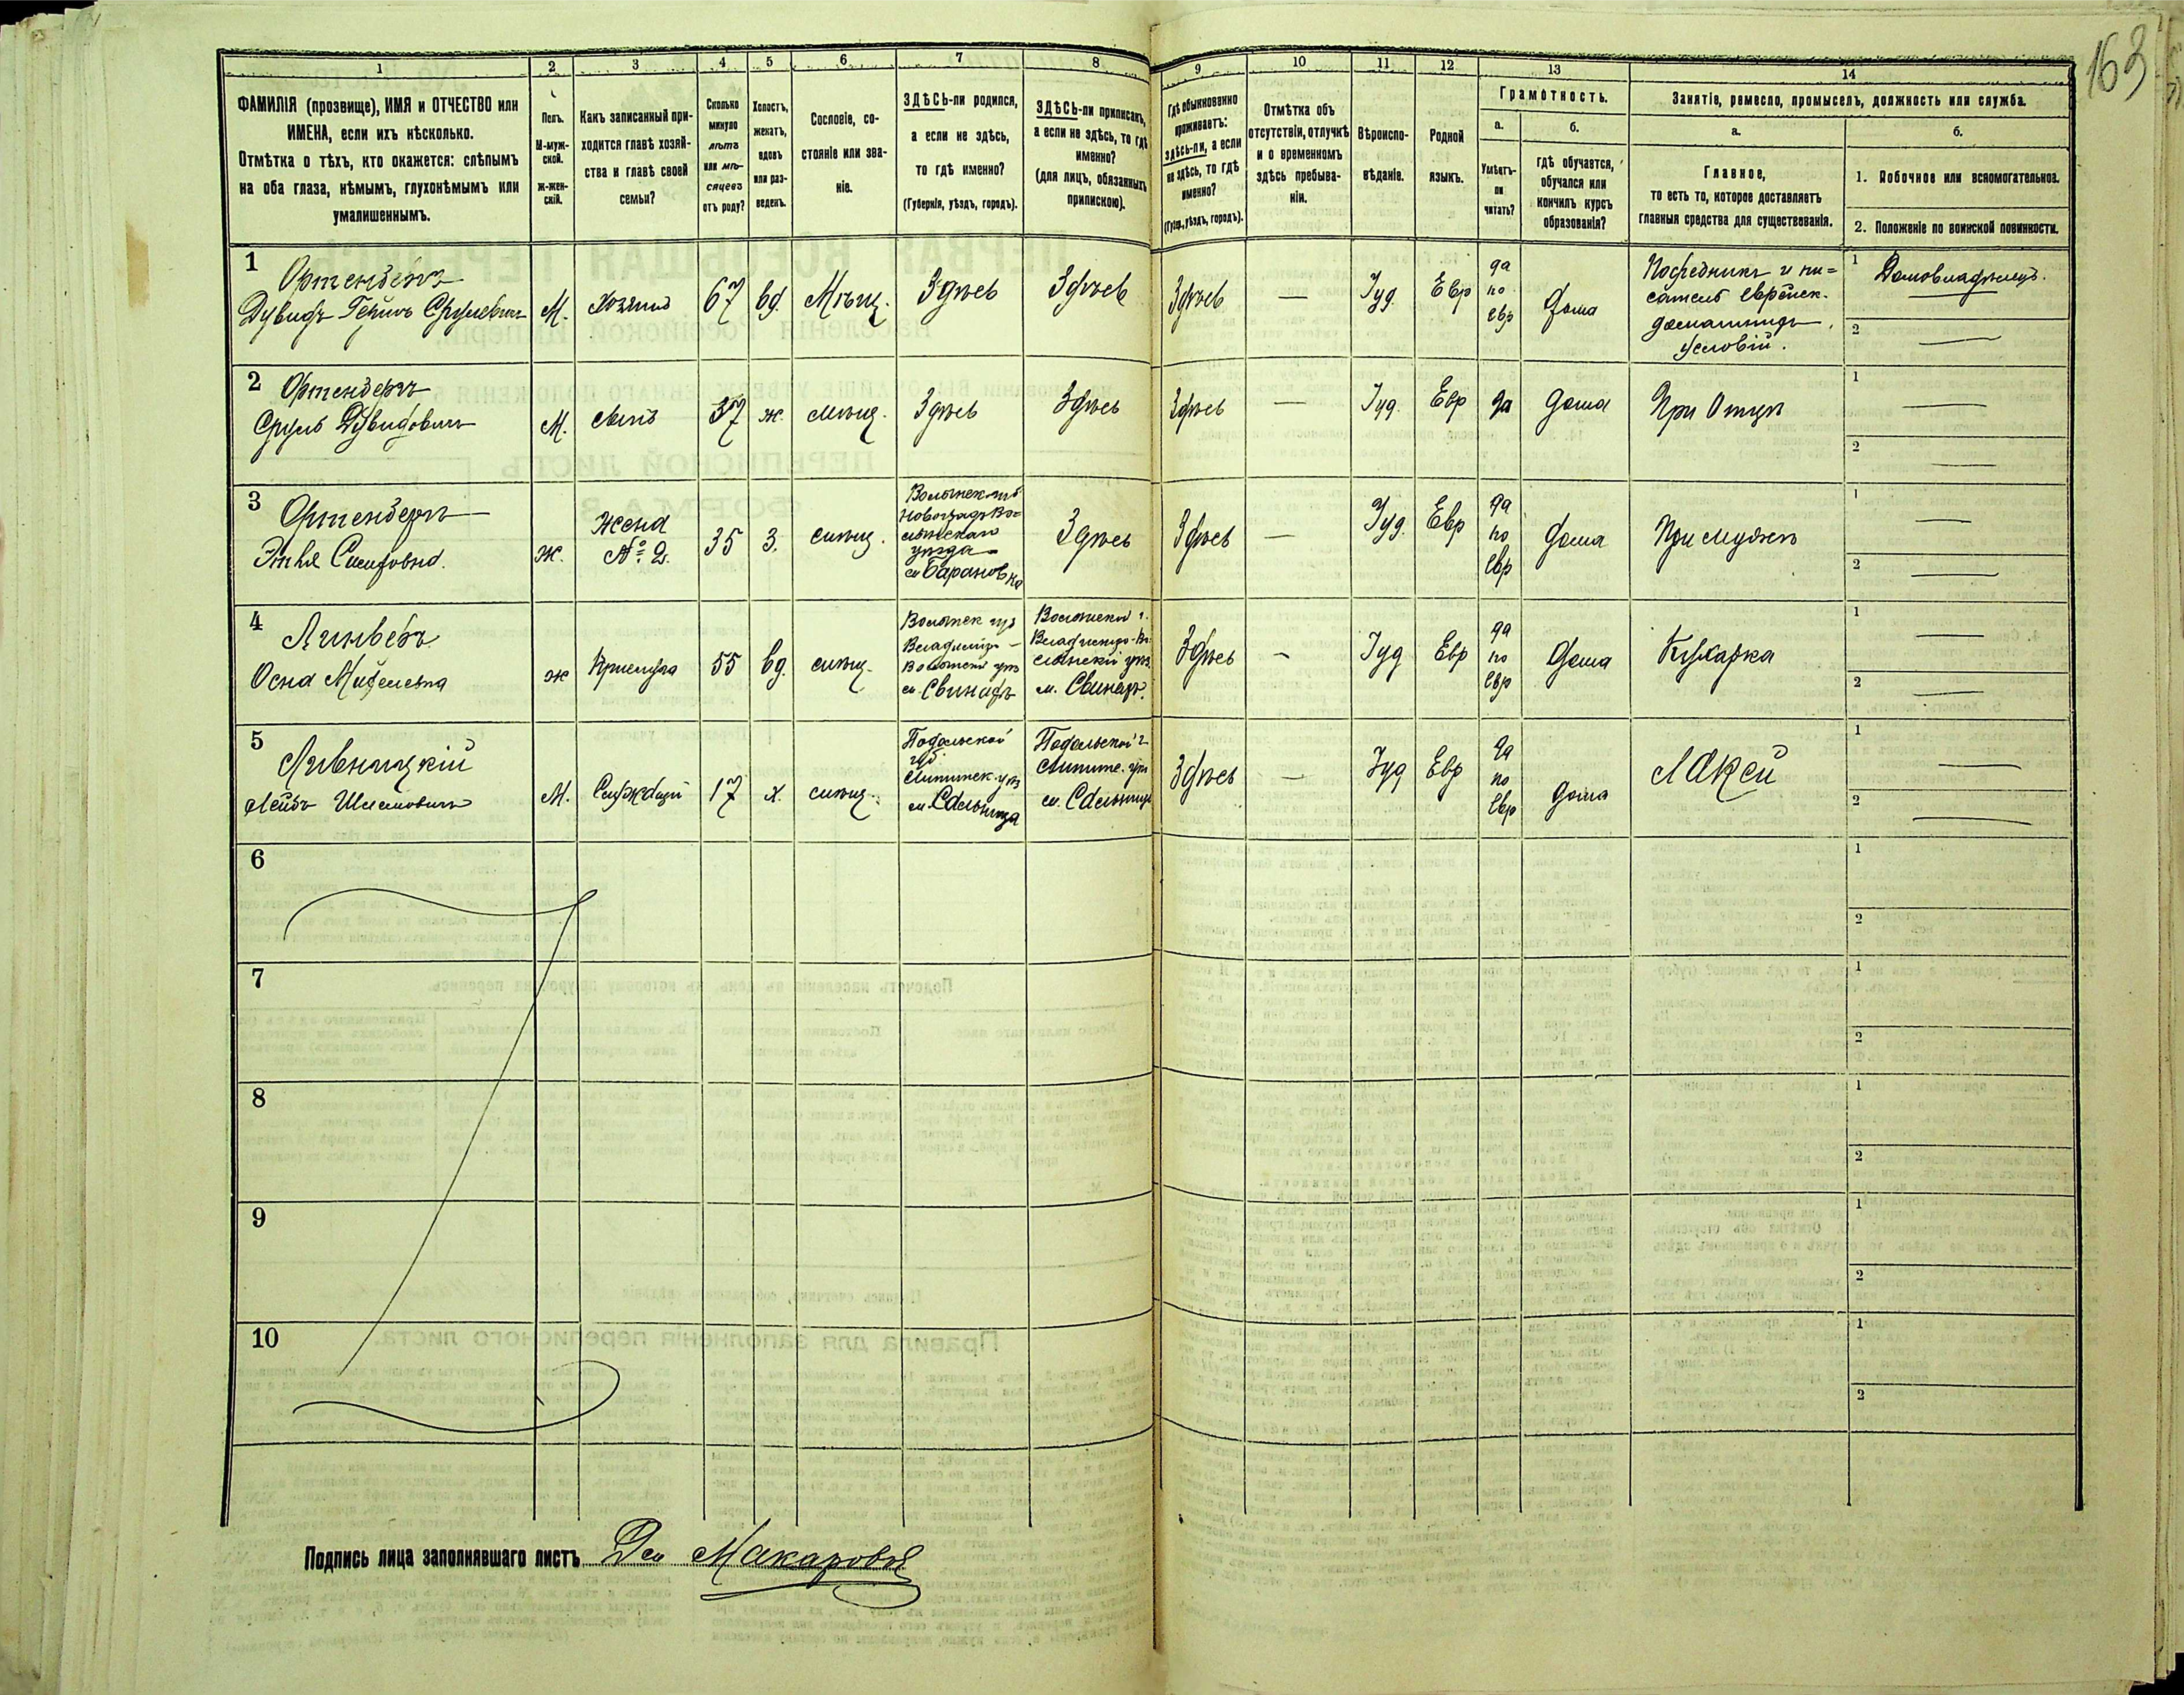 163
1 2 3 4 5 6 7 8 9 10 11 12 13 14
ФАМИЛІЯ (прозвище), ИМЯ и ОТЧЕСТВО или
ИМЕНА, если ихъ нѣсколько.
Отмѣтка о тѣхъ, кто окажется: слѣпымъ
на оба глаза, нѣмымъ, глухонѣмымъ или
умалишеннымъ.
Полъ.
М-муж-
ской.
ж-жен-
скій.
Какъ записанный при-
ходится главѣ хозяй-
ства и главѣ своей
семьи?
Сколько
минуло
лѣтъ
или мѣ-
сяцевъ
отъ роду?
Холостъ,
женатъ,
вдовъ
или раз-
веденъ.
Сословіе, со-
стояніе или зва-
ніе.
ЗДѢСЬ-ли родился,
а если не здѣсь,
то гдѣ именно?
(Губернія, уѣздъ, городъ).
ЗДѢСЬ-ли приписанъ,
а если не здѣсь, то гдѣ
именно?
(для лицъ, обязанныхъ
припискою).
Гдѣ обыкновенно
проживаетъ:
здѣсь-ли, а если
не здѣсь, то гдѣ
именно?
(Губер., уѣздъ, городъ).
Отмѣтка объ
отсутствіи, отлучкѣ
и о временномъ
здѣсь пребыва-
ніи.
Вѣроиспо-
вѣданіе.
Родной
языкъ.
Грамотность.
а.
Умѣетъ-
ли
читать?
б.
гдѣ обучается,
обучался или
кончилъ курсъ
образованія?
Занятіе, ремесло, промыселъ, должность или служба.
а.
Главное,
то есть то, которое доставляетъ
главныя средства для существованія.
б.
1. Побочное или вспомогательное.
2. Положеніе по воинской повинности.
1
Дувидъ Гершъ Срулевичъ
М.
Хозяинъ
67
вд.
Мѣщ.
Здѣсь
Здѣсь
Здѣсь
—
Іуд.
Евр
да
по
евр
дома
Посредникъ и пи=
сатель еврейск.
домашнихъ
условій.
1 Домовладѣлецъ.
2 —
2
Сруль Дувидовичъ
М.
сынъ
37
ж.
мѣщ.
Здѣсь
Здѣсь
Здѣсь
—
Іуд.
Евр
да
дома
При Отцѣ
1 —
2 —
3
Ж.
Жена
№ 2.
35
З.
мѣщ.
Волынск. губ
Новоградъ Во=
лынскаго
уѣзда
м. Барановка
Здѣсь
Здѣсь
—
Іуд.
Евр
да
по
евр
дома
При мужѣ
1 —
2 —
4
ж
Прислуга
55
вд.
мѣщ.
Волынск губ
Владимиръ-
Волынскій уѣз
м. Свинарь
Волынской г.
Владимиръ-Во-
лынскій уѣз.
м. Свинарь.
Здѣсь
—
Іуд
Евр
да
по
евр
Дома
Кухарка
1 —
2 —
5
Ливницкій
Лейбъ Шлемовичъ
М.
Служащій
17
х.
мѣщ.
Подольской
губ.
Литинск. уѣз
м. Сальница
Подольской г.
Литинс. уѣз
м. Сальница
Здѣсь
—
Іуд
Евр
да
по
евр
дома
Лакей
1 —
2 —
6
1
2
7
1
2
8
1
2
9
1
2
10
1
2
Подпись лица заполнявшаго листъ Макаровъ